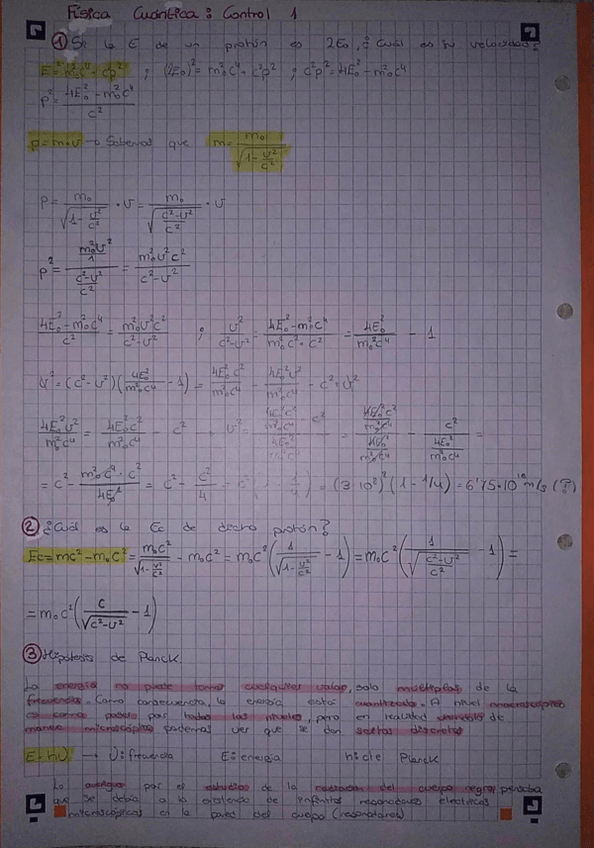 Física Cuántica: Control 1
① Si la E de un protón es 2E₀, ¿Cuál es su velocidad?
E² = m₀²c⁴ + c²p² ; (2E₀)² = m₀²c⁴ + c²p² ; c²p² = 4E₀² - m₀²c⁴
p² = (4E₀² - m₀²c⁴)/c²
p = m·v → Sabemos que m = m₀/√(1 - v²/c²)
p = m₀/√(1 - v²/c²) · v = m₀/√((c²-v²)/c²) · v
p² = (m₀²v²/1)/((c²-v²)/c²) = m₀²v²c²/(c²-v²)
(4E₀² - m₀²c⁴)/c² = m₀²v²c²/(c²-v²) ; v²/(c²-v²) = (4E₀² - m₀²c⁴)/(m₀²c²·c²) = 4E₀²/m₀²c⁴ - 1
v² = (c²-v²)(4E₀²/m₀²c⁴ - 1) = 4E₀²c²/m₀²c⁴ - 4E₀²v²/m₀²c⁴ - c² + v²
4E₀²v²/m₀²c⁴ = 4E₀²c²/m₀²c⁴ - c² v² = = (4E₀²c²/m₀²c⁴)/(4E₀²/m₀²c⁴) - c²/(4E₀²/m₀²c⁴) =
= c² - m₀²c⁴·c²/4E₀² = c² - c²/4 = c²(1 - 1/4) = (3·10⁸)²(1 - 1/4) = 6'75·10¹⁶ m/s (?)
② ¿Cuál es la Ec de dicho protón?
Ec = mc² - m₀c² = m₀c²/√(1 - v²/c²) - m₀c² = m₀c²(1/√(1 - v²/c²) - 1) = m₀c²(1/√((c²-v²)/c²) - 1) =
= m₀c²(c/√(c²-v²) - 1)
③ Hipótesis de Planck.
La energía no puede tomar cualquier valor, solo múltiplos de la
frecuencia. Como consecuencia, la energía está cuantizada. A nivel macroscópico
es como pasar por todos los niveles, pero en realidad de
manera microscópica podemos ver que se dan saltos discretos
E = hν → ν: frecuencia E: energía h: cte Planck
Lo por el estudio de la radiación del cuerpo negro, pensaba
que se debía a la existencia de infinitos resonadores eléctricos
microscópicos en la pared del cuerpo (resonadores)